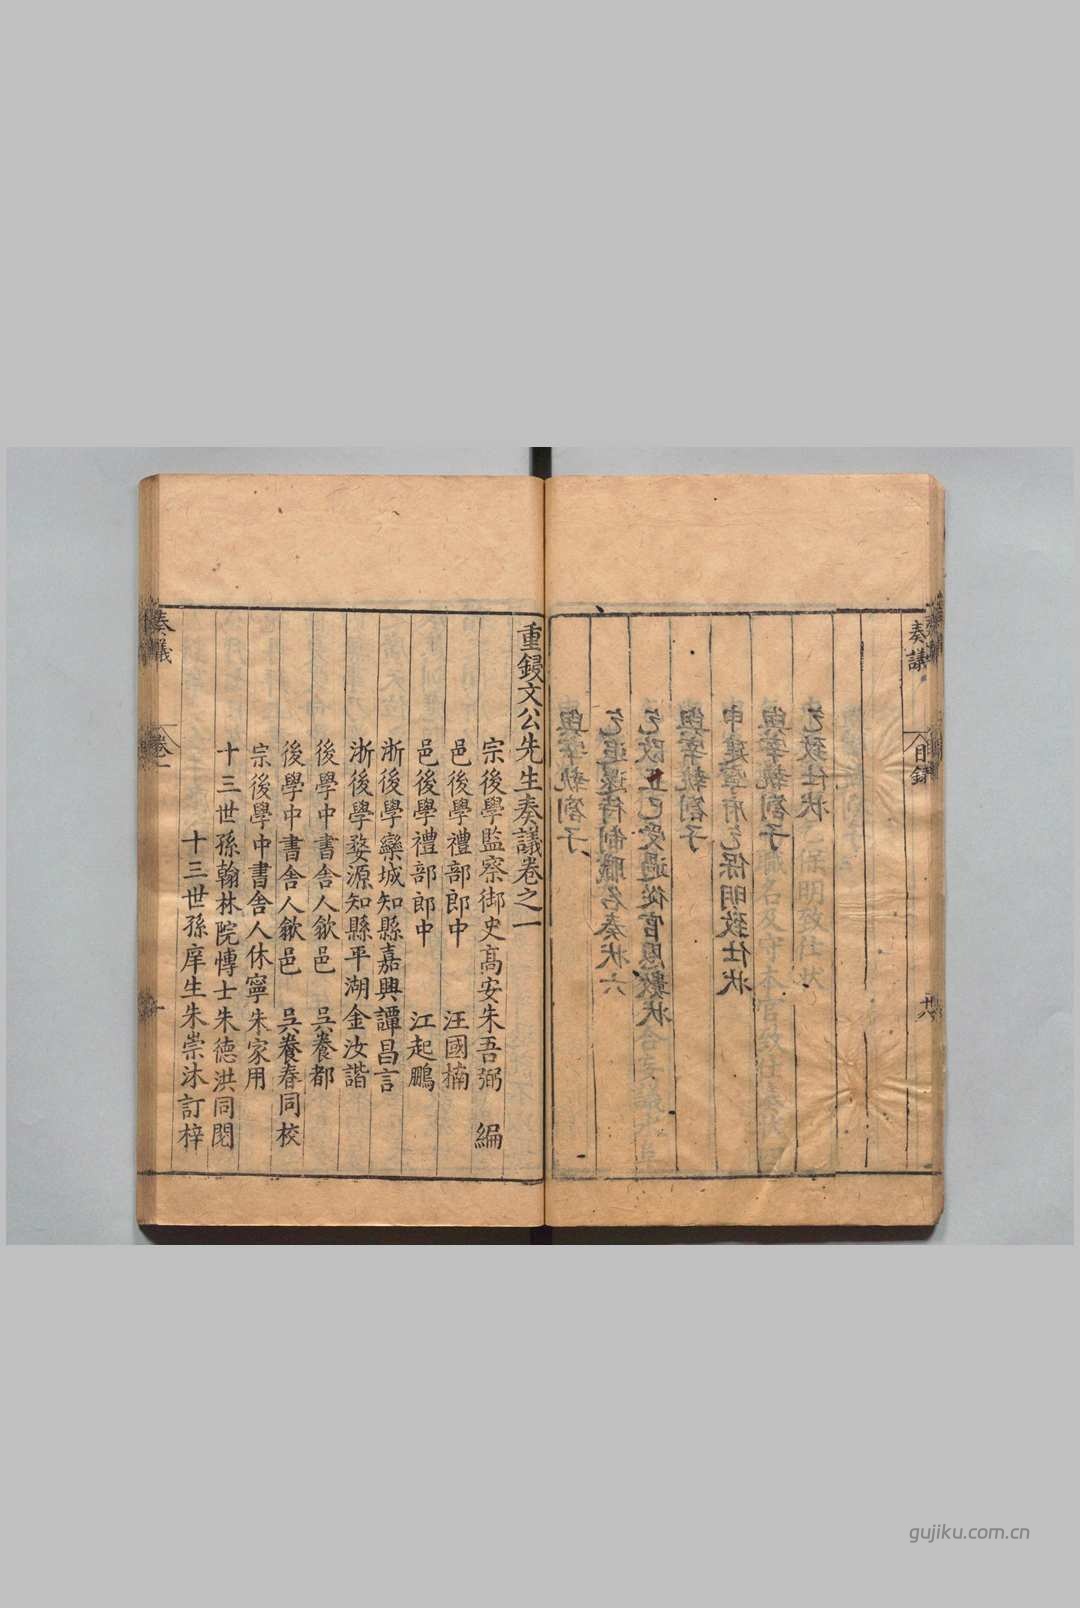 奏議
目録
廿八
乞致仕状
與宰執劄子
申建寧府乞保明致仕状
與宰執劄子
乞改正已受過從官恩數状
乞追還待制職名奏状六
與宰執劄子
重鋟文公先生奏議卷之一
宗後學監察御史高安朱吾弼 編
邑後學禮部郎中 汪國楠
邑後學禮部郎中 江起鵬
浙後學欒城知縣嘉興譚昌言
浙後學婺源知縣平湖金汝諧
後學中書舍人歙邑 吳養都
後學中書舍人歙邑 吳養春同校
宗後學中書舍人休寧朱家用
十三世孫翰林院博士朱德洪同閱
十三世孫庠生朱崇沐訂梓
奏議
卷一
gujiku.com.cn